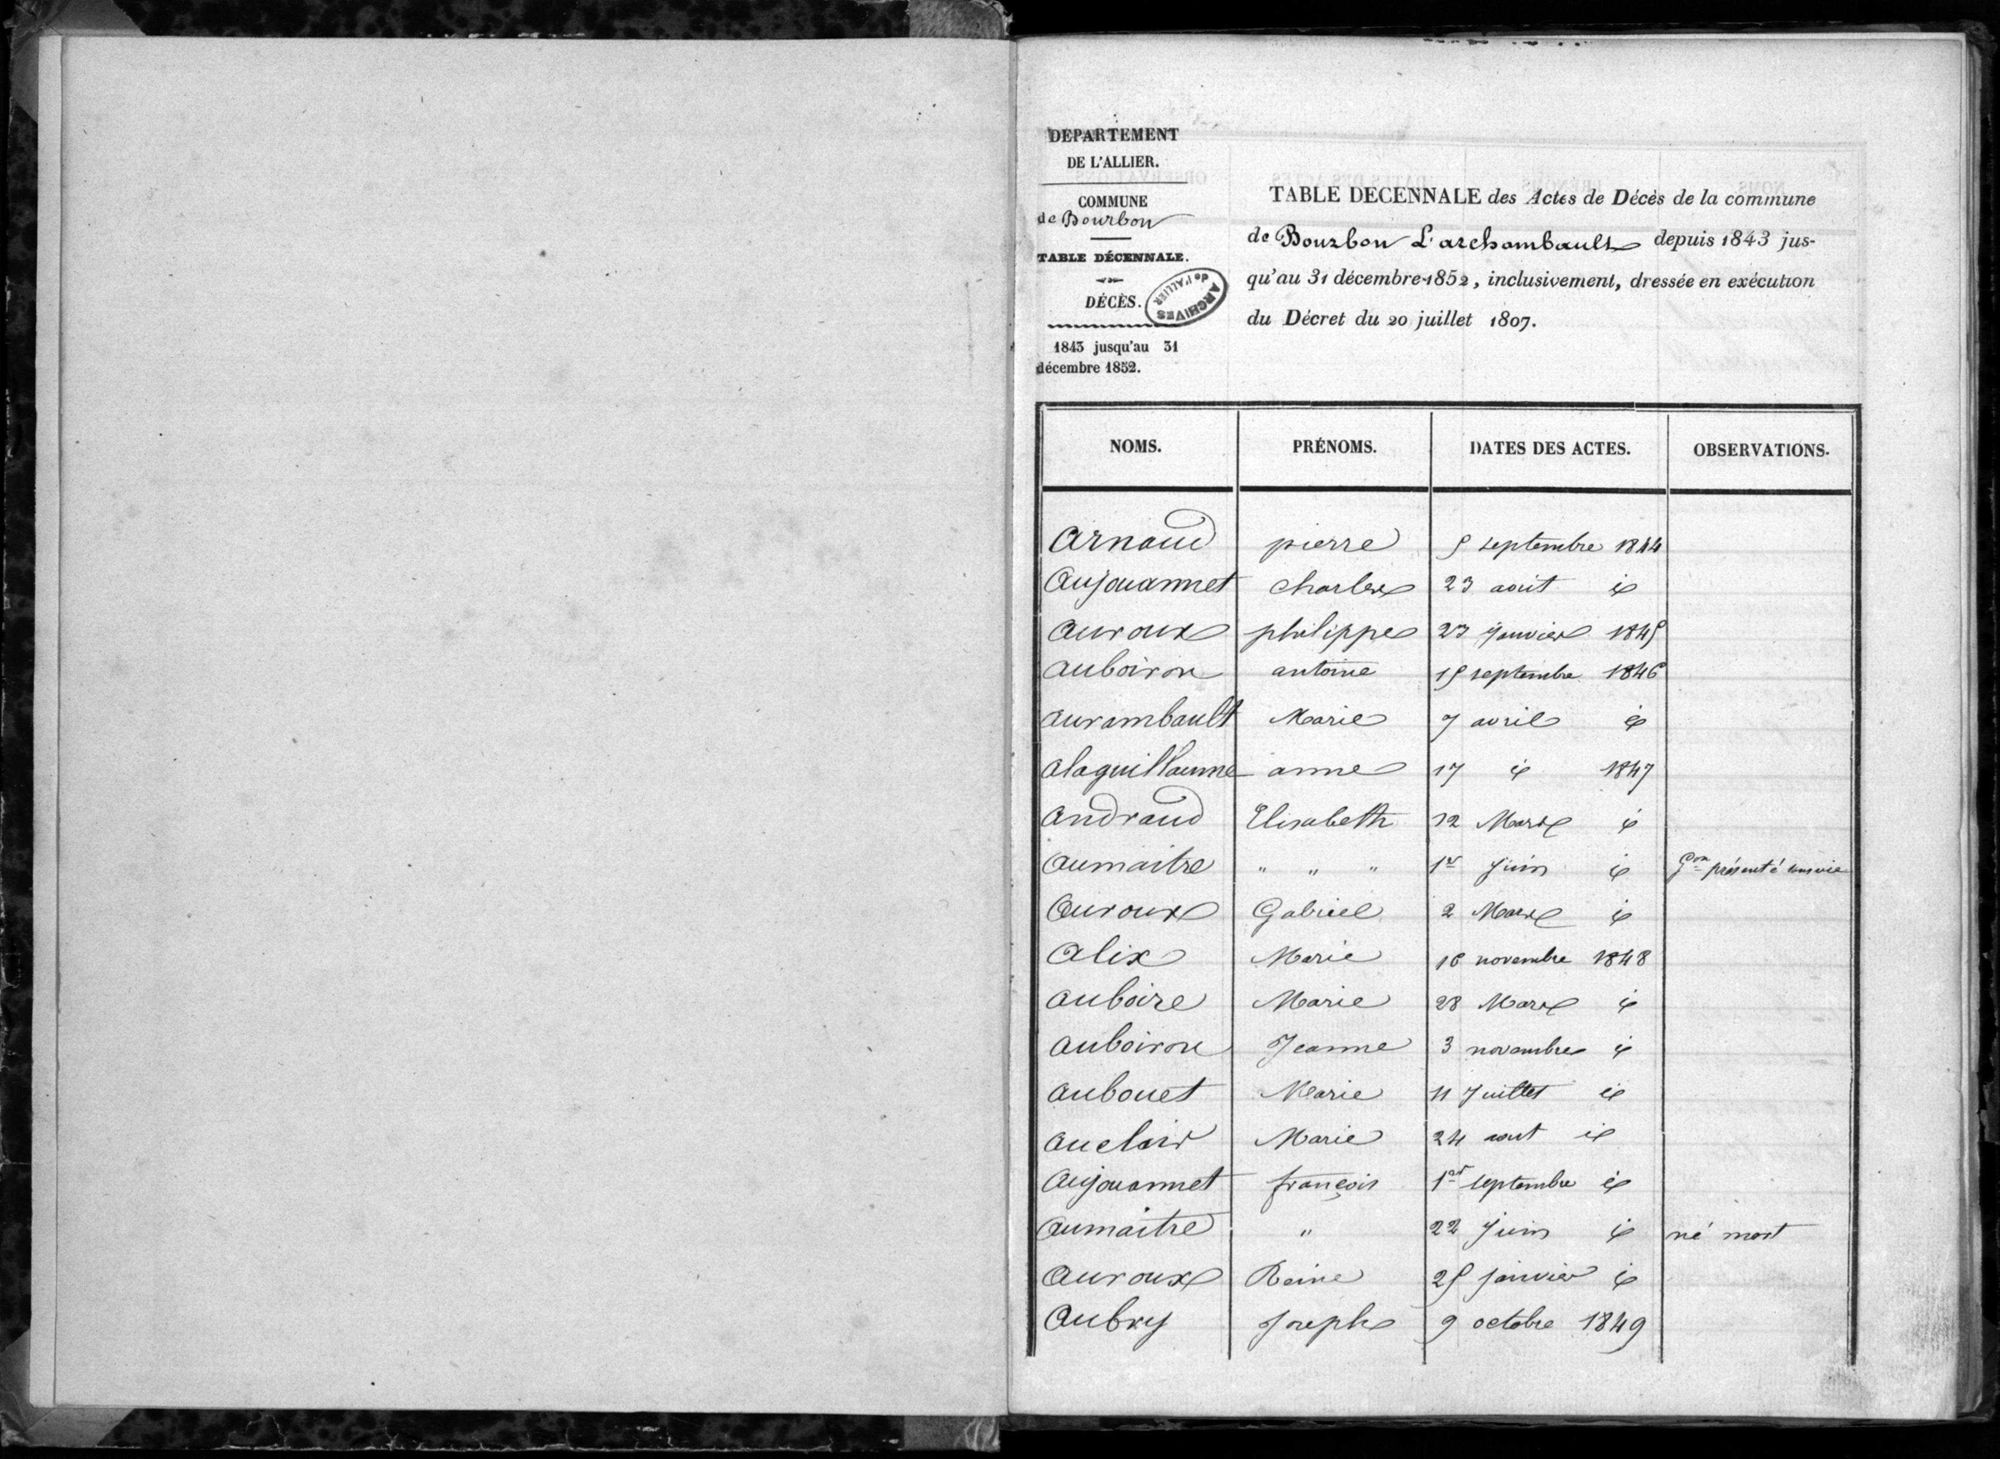 DEPARTEMENT
DE L'ALLIER.
COMMUNE
de Bourbon
TABLE DÉCENNALE.
DÉCÈS.
ARCHIVES
de l'ALLIER
1843 jusqu'au 31
décembre 1852.
TABLE DECENNALE des Actes de Décès de la commune
de Bourbon L'archambault depuis 1843 jus-
qu'au 31 décembre 1852, inclusivement, dressée en exécution
du Décret du 20 juillet 1807.
NOMS. PRÉNOMS. DATES DES ACTES. OBSERVATIONS.
Arnaud pierre 5 septembre 1844
Aujouannet Charles 23 aout id
Auroux philippe 23 janvier 1845
Auboiron antoine 15 septembre 1846
Aurambault Marie 7 avril id
Alaguillaume anne 17 id 1847
Andraud Elisabeth 12 Mars id
Aumaitre " " " 1er Juin id Gon présenté sans vie
Auroux Gabriel 2 Mars id
Alix Marie 16 novembre 1848
Auboire Marie 28 Mars id
Auboiron Jeanne 3 novembre id
Aubouet Marie 11 Juillet id
Auclair Marie 24 aout id
Aujouannet françois 1er septembre id
Aumaitre " 22 Juin id né mort
Auroux Reine 25 janvier id
Aubry Joseph 9 octobre 1849